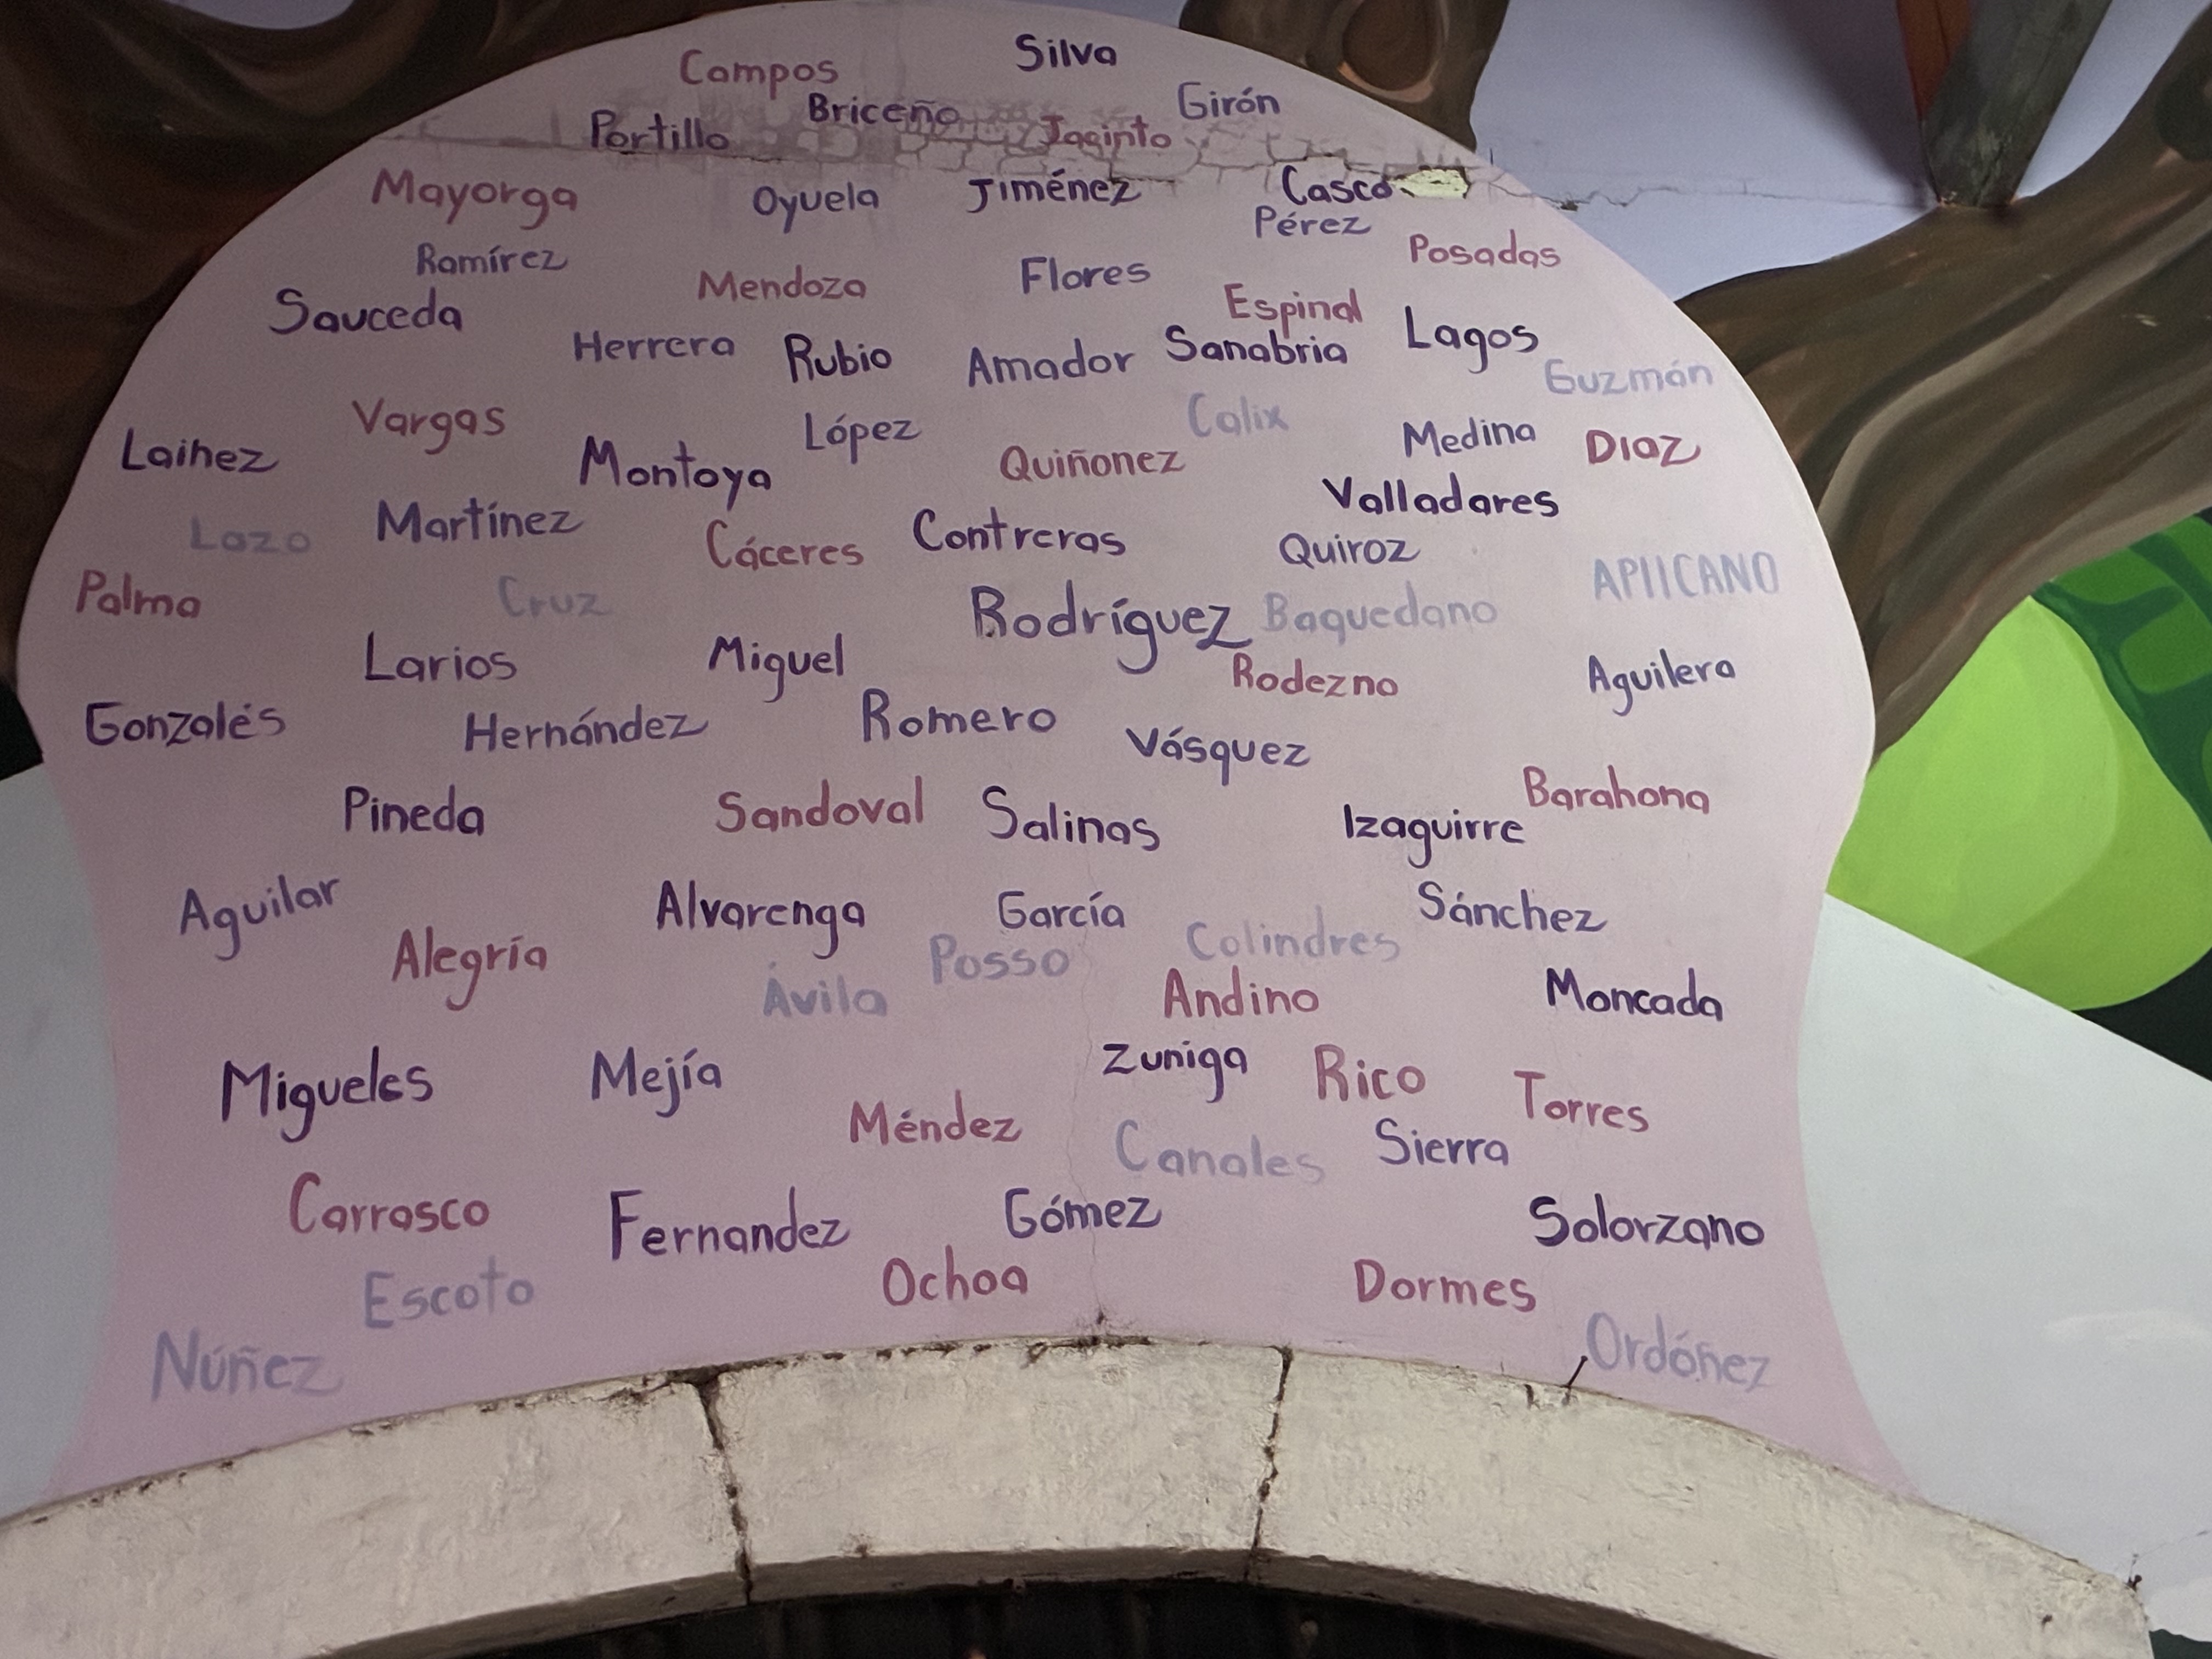 Campos Silva
Portillo Briceño Jacinto Girón
Mayorga Oyuela Jiménez Casco
Pérez
Ramírez Mendoza Flores Posadas
Sauceda Espinal
Herrera Rubio Amador Sanabria Lagos
Guzmán
Vargas López Calix
Lainez Montoya Quiñonez Medina Diaz
Valladares
Lazo Martínez Cáceres Contreras Quiroz
Palma Cruz Rodríguez Baquedano APIICANO
Larios Miguel Rodezno Aguilera
Gonzalés Hernández Romero Vásquez
Pineda Sandoval Salinas Izaguirre Barahona
Aguilar Alvarenga García Sánchez
Alegría Posso Colindres
Ávila Andino Moncada
Migueles Mejía Zuniga Rico Torres
Méndez Canales Sierra
Carrasco Fernandez Gómez Solorzano
Escoto Ochoa Dormes
Núñez Ordóñez